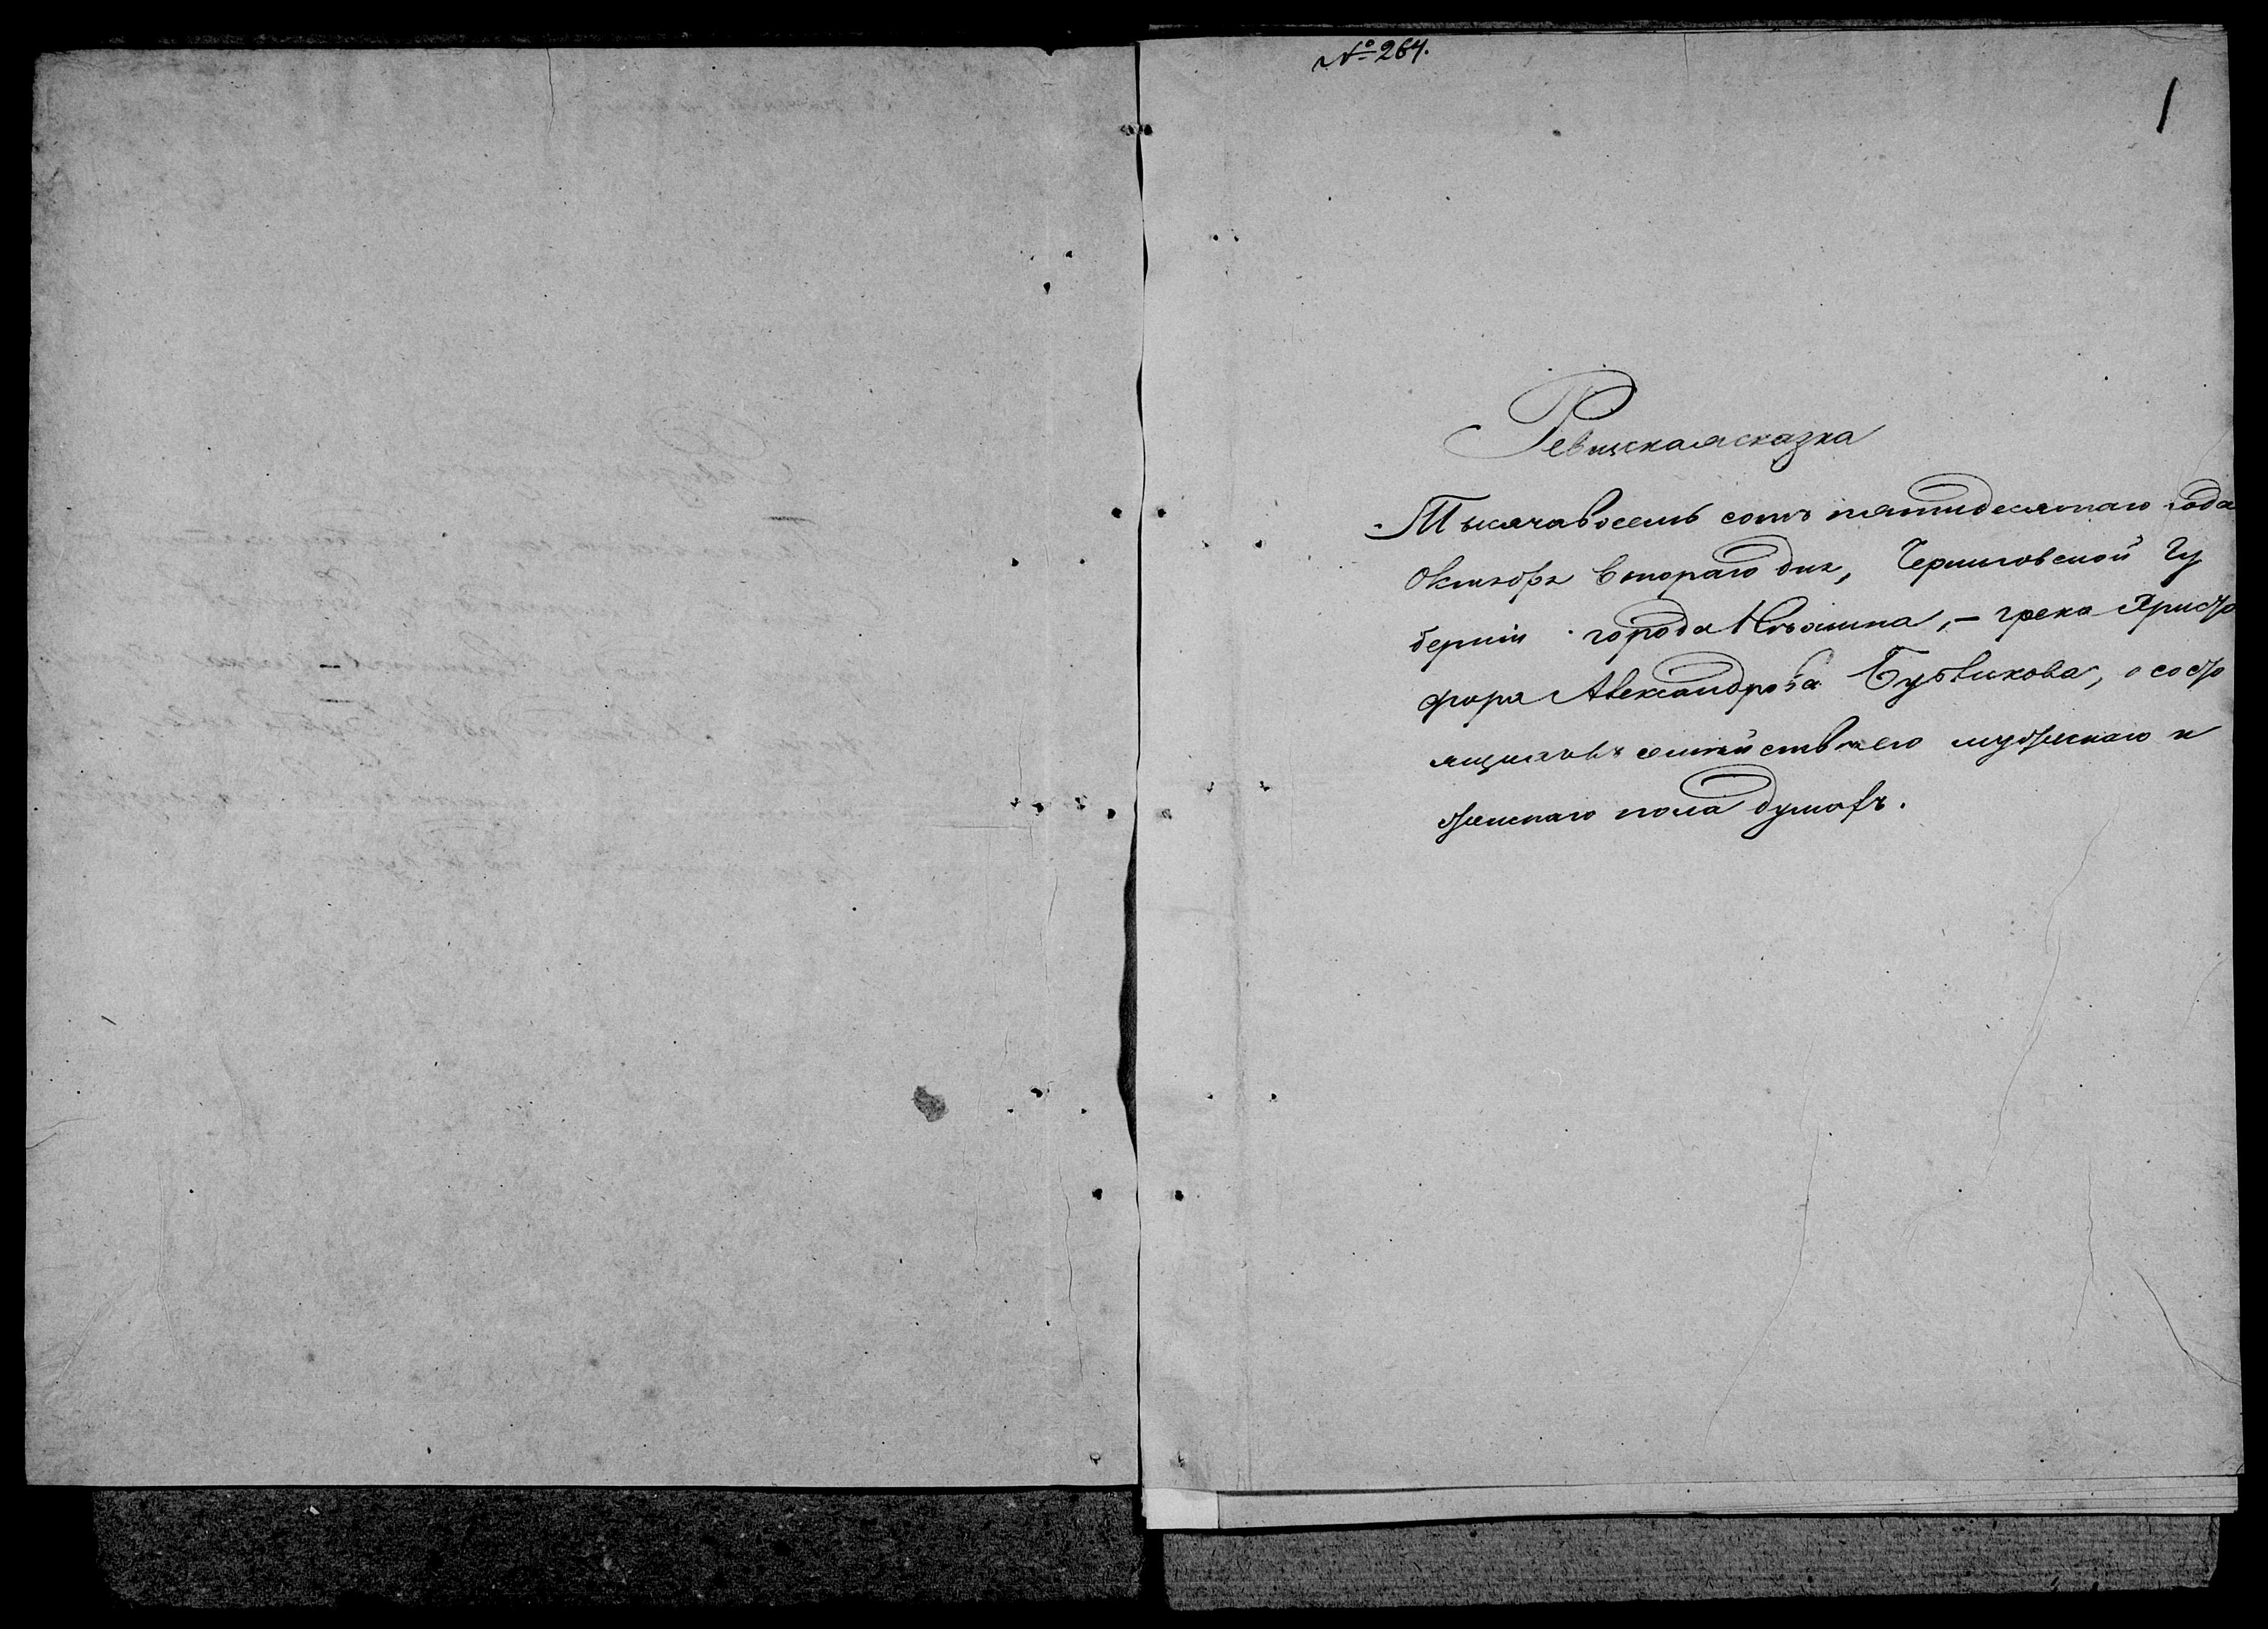 № 264.
1
Ревизская сказка
Тысяча восемь сотъ пятидесятаго года
Октября втораго дня, Черниговской Гу
берніи города Нѣжина, – грека Христо
фора Александрова Бубликова, о состо
ящихъ въ семействѣ его мужескаго и
женскаго пола душахъ.